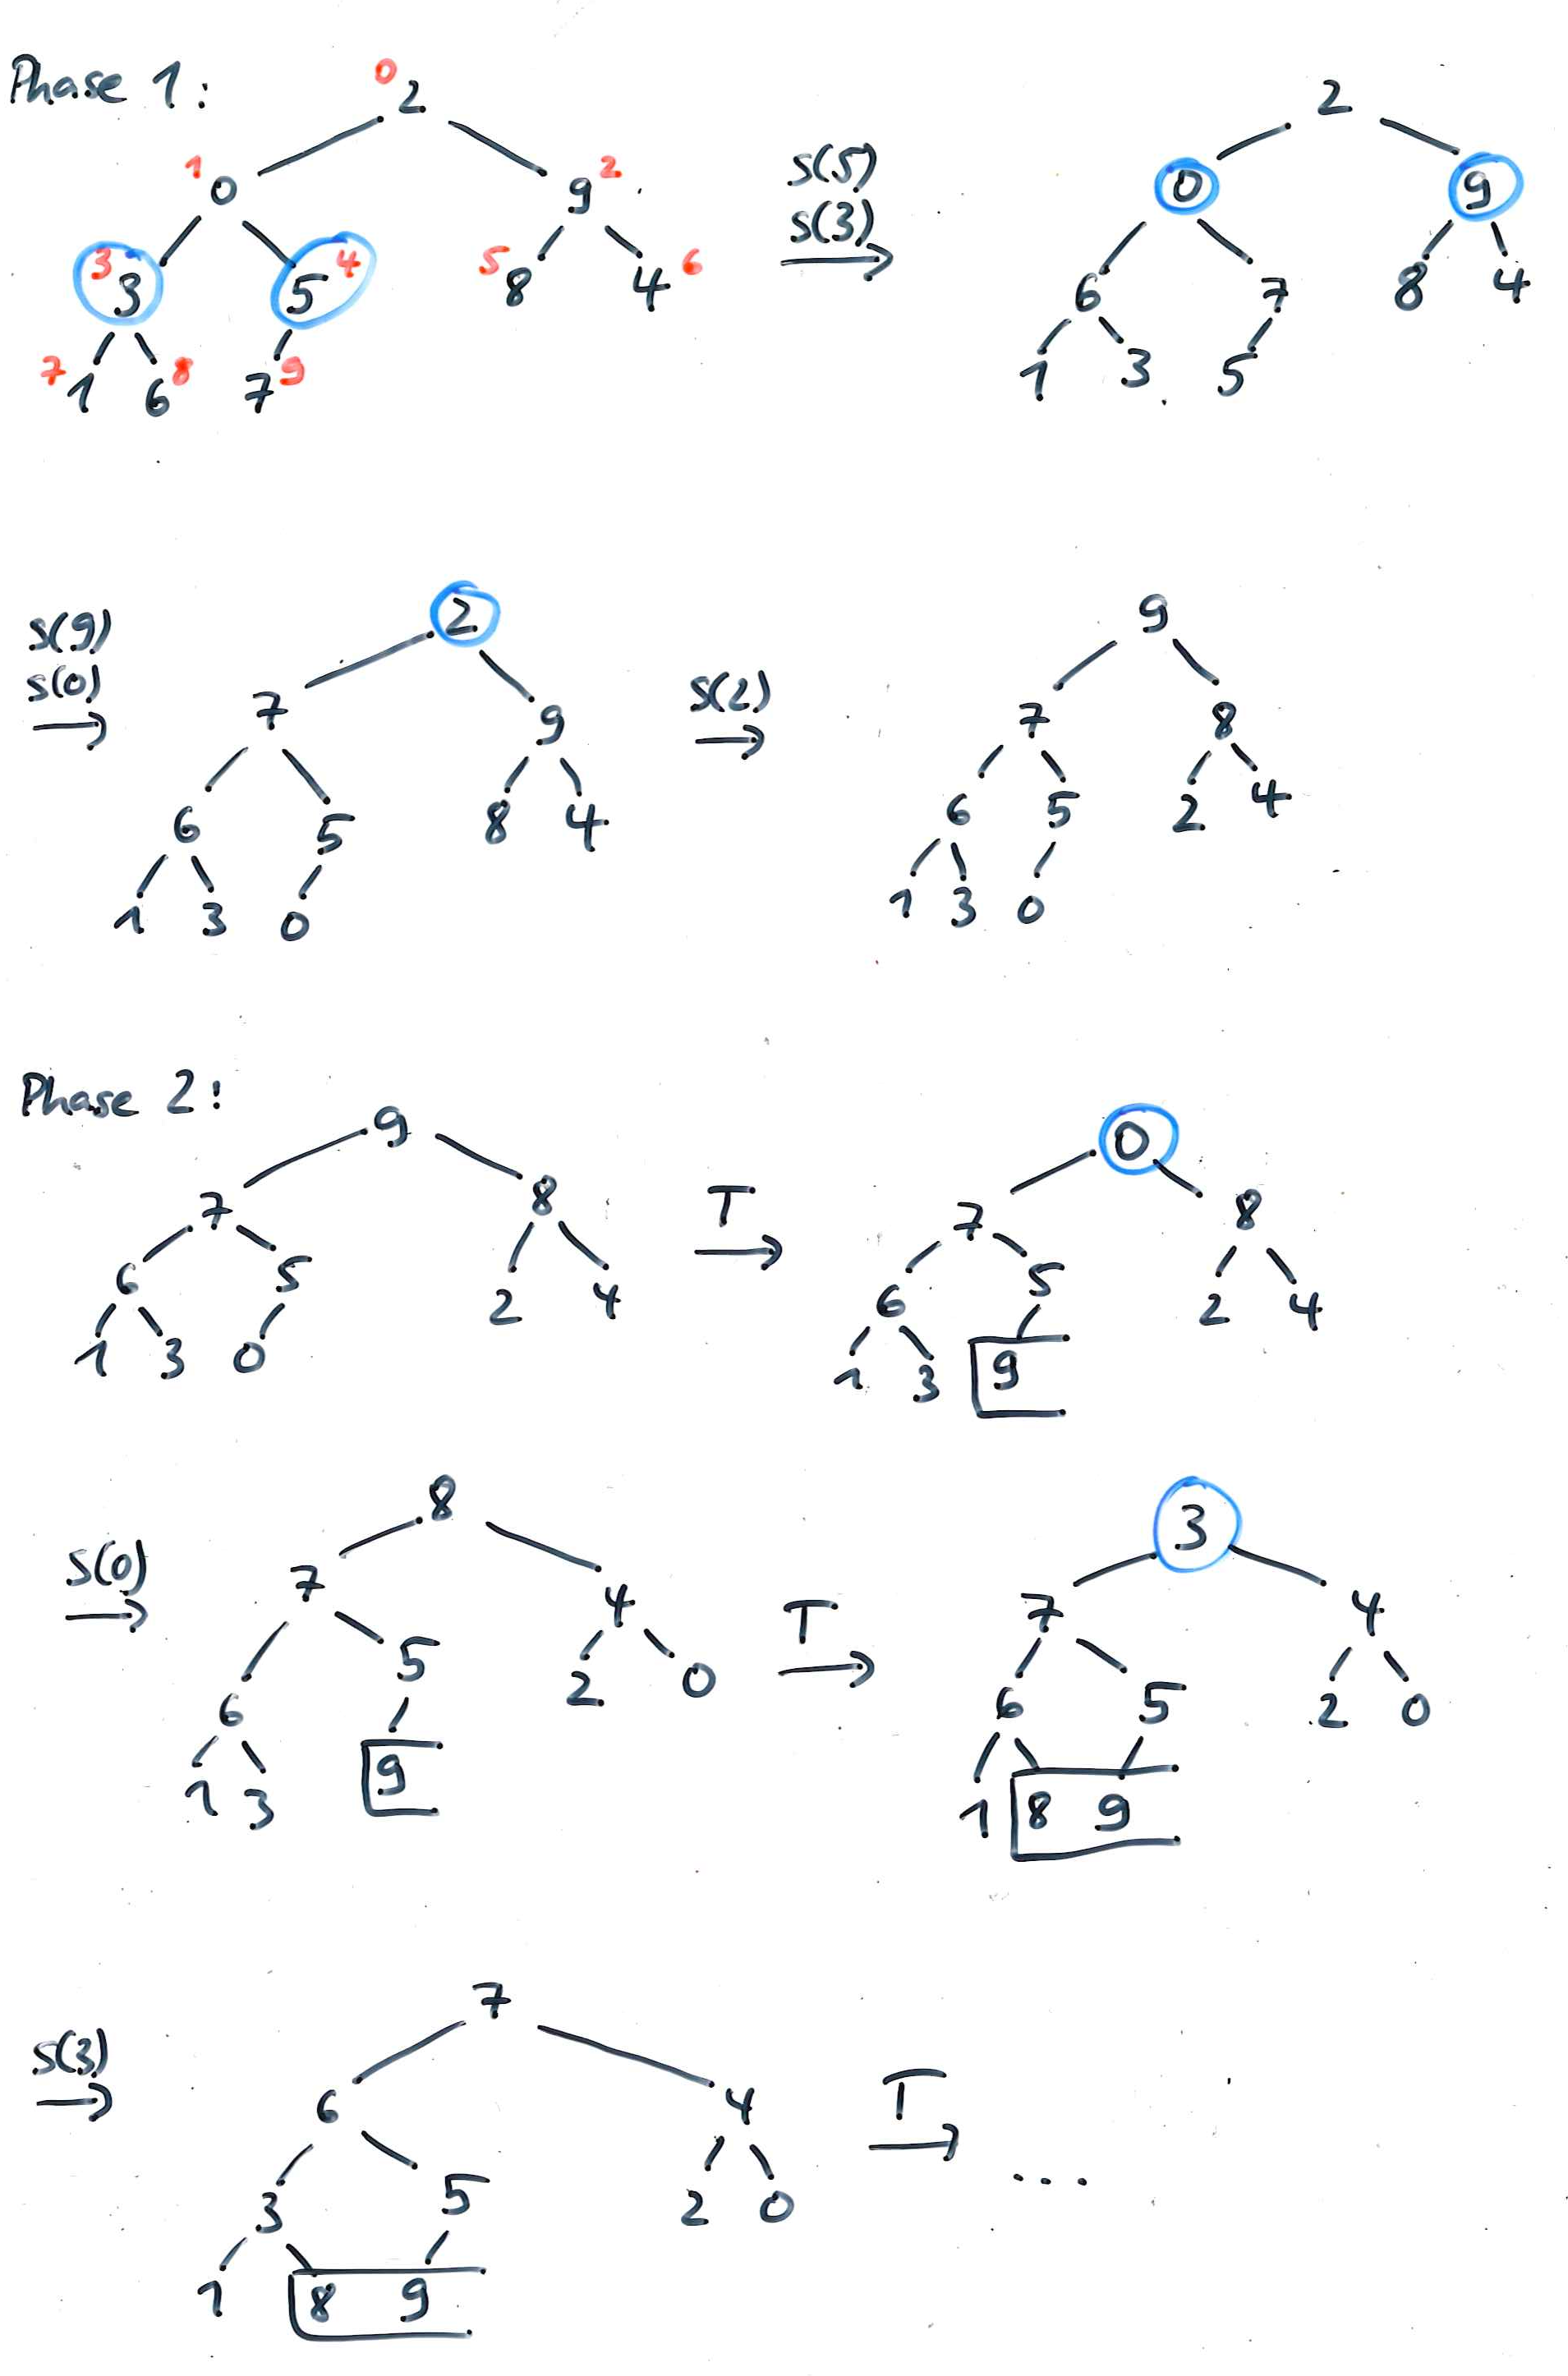 Phase 1:
0 2
1 0 9 2
3 3 5 4 5 8 4 6
7 1 6 8 7 9
s(5)
s(3)
2
0 9
6 7 8 4
1 3 5
s(9)
s(0)
2
7 9
6 5 8 4
1 3 0
s(2)
9
7 8
6 5 2 4
1 3 0
Phase 2:
9
7 8
6 5 2 4
1 3 0
T
0
7 8
6 5 2 4
1 3 9
s(0)
8
7 4
6 5 2 0
1 3 9
T
3
7 4
6 5 2 0
1 8 9
s(3)
7
6 4
3 5 2 0
1 8 9
T
...